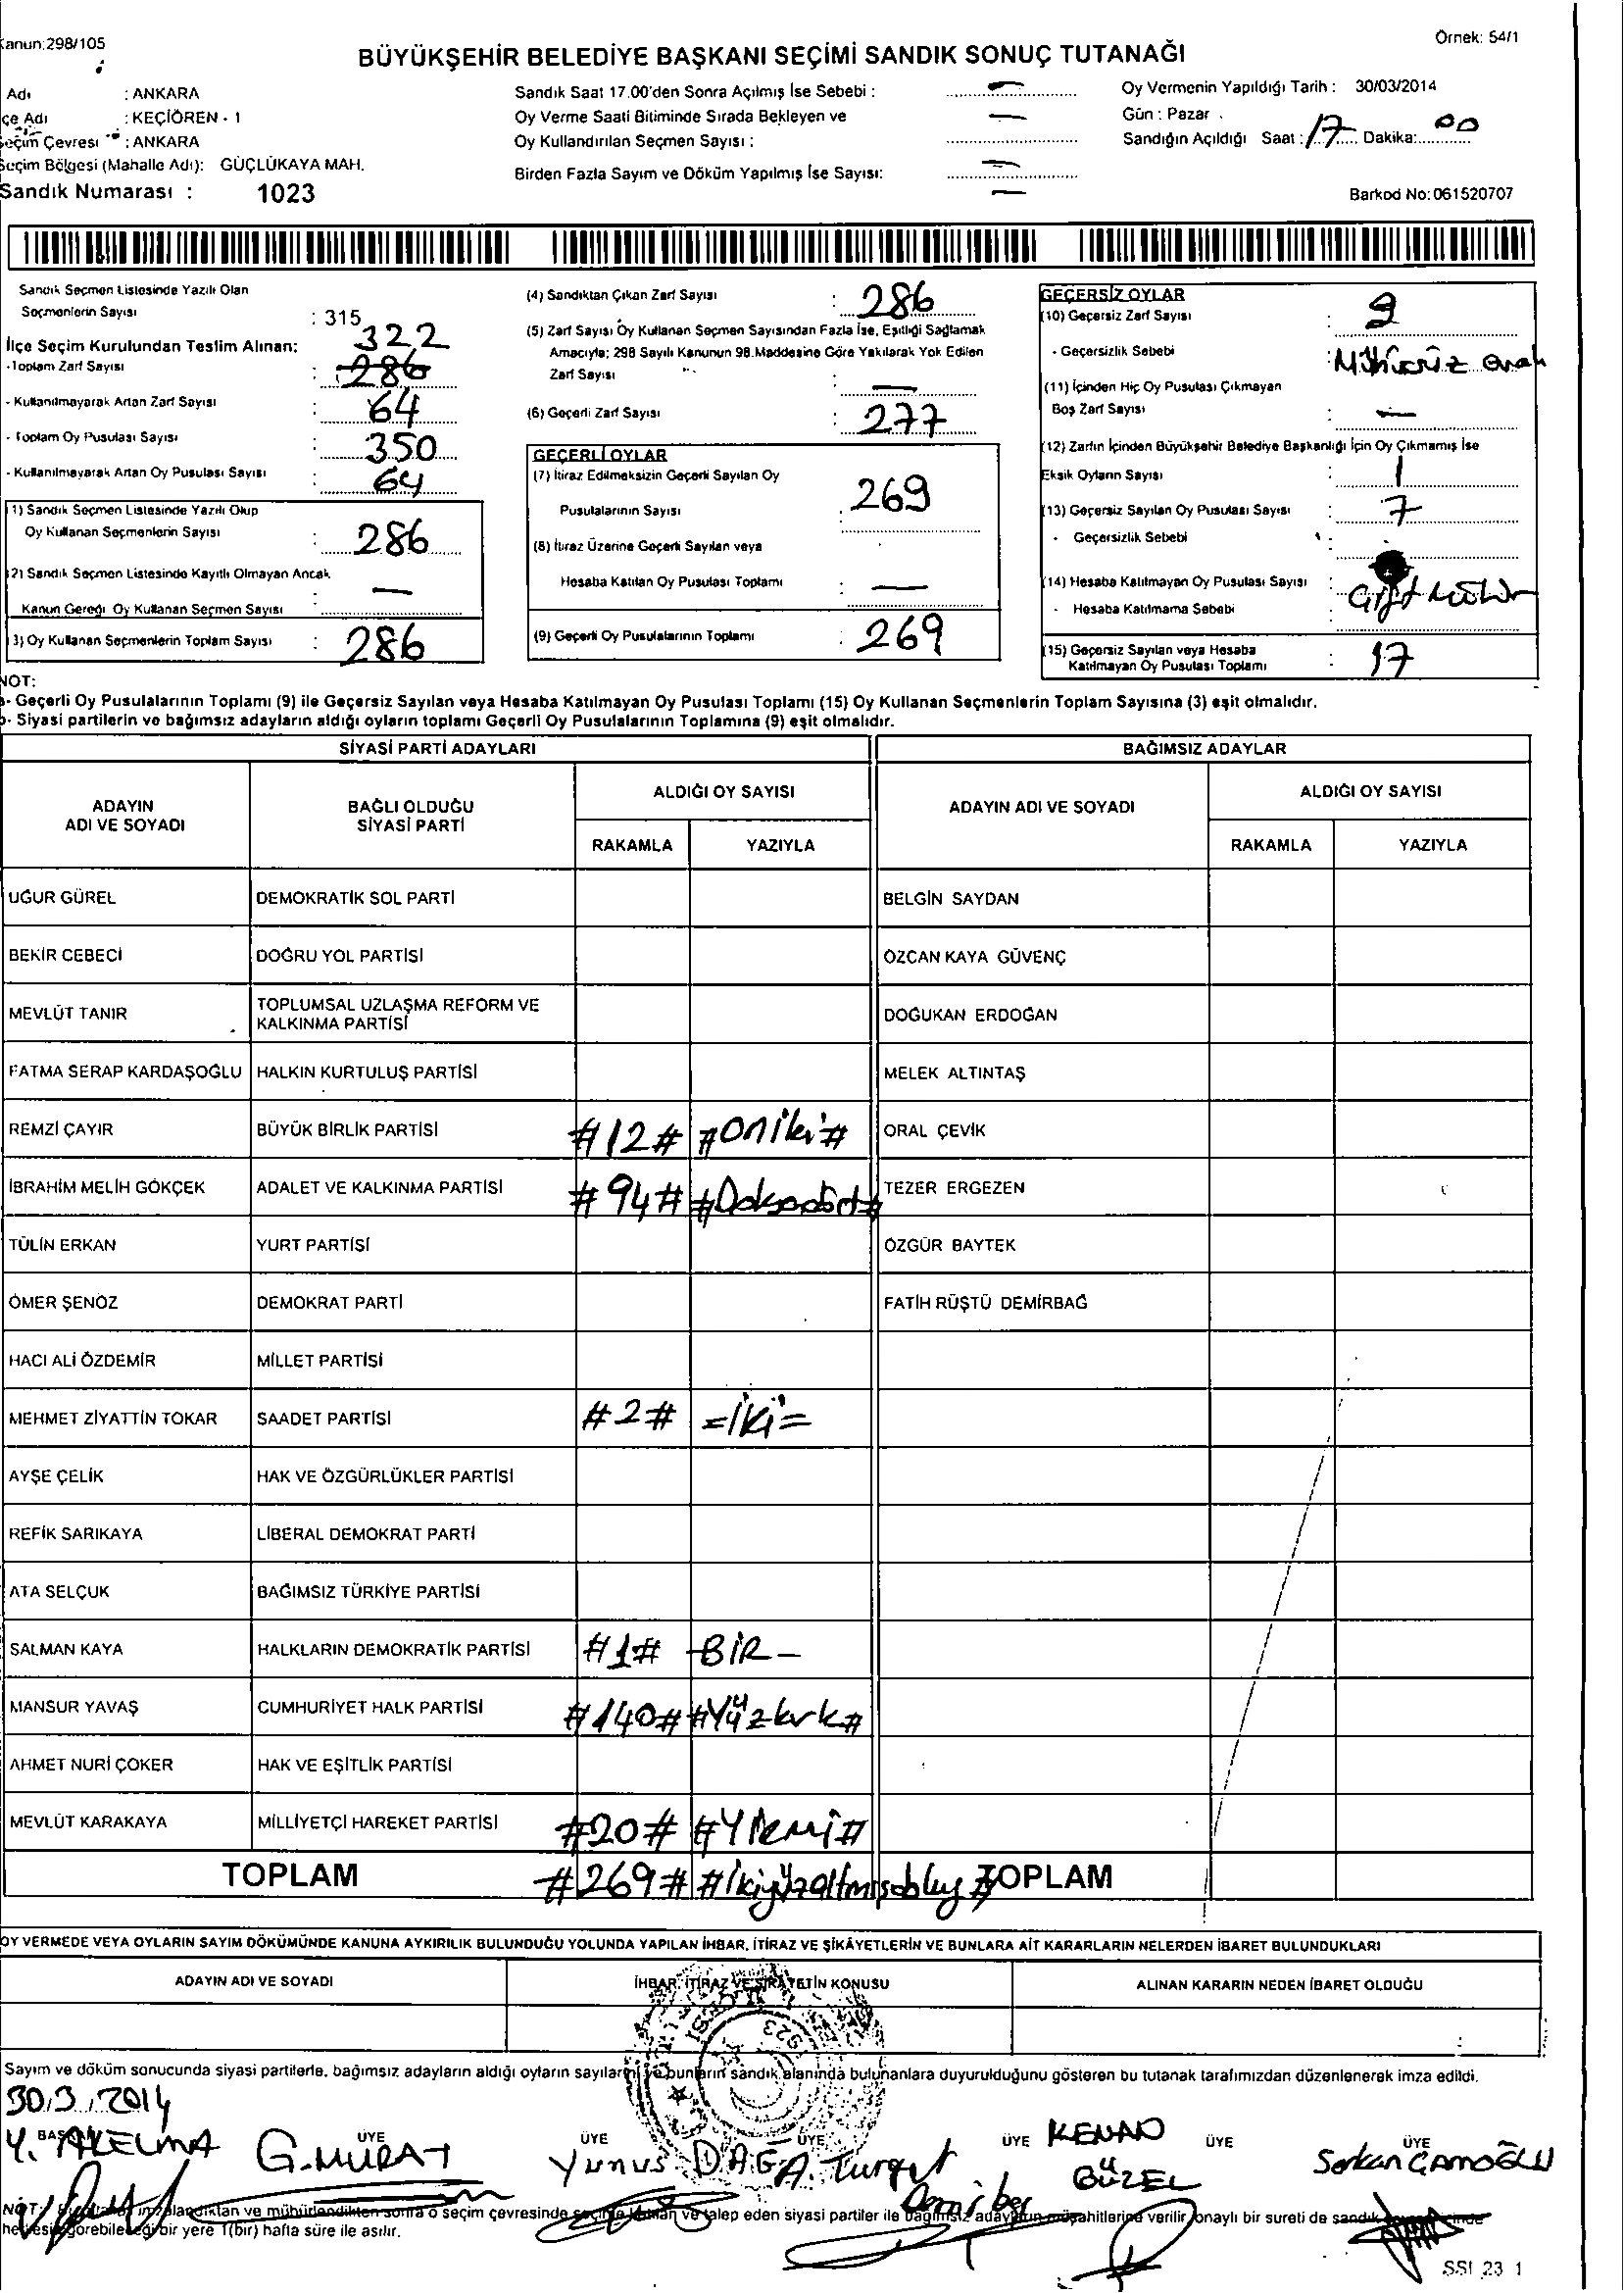 Kanun:298/105
Örnek: 54/1
BÜYÜKŞEHİR BELEDİYE BAŞKANI SEÇİMİ SANDIK SONUÇ TUTANAĞI
Adı : ANKARA
çe Adı : KEÇİÖREN - 1
Seçim Çevresi : ANKARA
Seçim Bölgesi (Mahalle Adı): GÜÇLÜKAYA MAH.
Sandık Numarası : 1023
Sandık Saat 17.00'den Sonra Açılmış İse Sebebi : —
Oy Verme Saati Bitiminde Sırada Bekleyen ve
Oy Kullandırılan Seçmen Sayısı : —
Birden Fazla Sayım ve Döküm Yapılmış İse Sayısı: —
Oy Vermenin Yapıldığı Tarih : 30/03/2014
Gün : Pazar
Sandığın Açıldığı Saat : 17 Dakika: 00
Barkod No: 061520707
Sandık Seçmen Listesinde Yazılı Olan
Seçmenlerin Sayısı : 315
İlçe Seçim Kurulundan Teslim Alınan: 322
-Toplam Zarf Sayısı : 286
- Kullanılmayarak Artan Zarf Sayısı : 64
- Toplam Oy Pusulası Sayısı : 350
- Kullanılmayarak Artan Oy Pusulası Sayısı : 64
(1) Sandık Seçmen Listesinde Yazılı Olup
Oy Kullanan Seçmenlerin Sayısı : 286
(2) Sandık Seçmen Listesinde Kayıtlı Olmayan Ancak
Kanun Gereği Oy Kullanan Seçmen Sayısı : —
(3) Oy Kullanan Seçmenlerin Toplam Sayısı : 286
(4) Sandıktan Çıkan Zarf Sayısı : 286
(5) Zarf Sayısı Oy Kullanan Seçmen Sayısından Fazla İse, Eşitliği Sağlamak
Amacıyla; 298 Sayılı Kanunun 98.Maddesine Göre Yakılarak Yok Edilen
Zarf Sayısı : —
(6) Geçerli Zarf Sayısı : 277
GEÇERLİ OYLAR
(7) İtiraz Edilmeksizin Geçerli Sayılan Oy
Pusulalarının Sayısı : 269
(8) İtiraz Üzerine Geçerli Sayılan veya
Hesaba Katılan Oy Pusulası Toplamı : —
(9) Geçerli Oy Pusulalarının Toplamı : 269
GEÇERSİZ OYLAR
(10) Geçersiz Zarf Sayısı : 9
- Geçersizlik Sebebi : Mühürsüz
(11) İçinden Hiç Oy Pusulası Çıkmayan
Boş Zarf Sayısı : —
(12) Zarfın İçinden Büyükşehir Belediye Başkanlığı İçin Oy Çıkmamış İse
Eksik Oyların Sayısı : 1
(13) Geçersiz Sayılan Oy Pusulası Sayısı : 7
- Geçersizlik Sebebi :
(14) Hesaba Katılmayan Oy Pusulası Sayısı :
- Hesaba Katılmama Sebebi Çift Mühür
(15) Geçersiz Sayılan veya Hesaba
Katılmayan Oy Pusulası Toplamı : 17
NOT:
a- Geçerli Oy Pusulalarının Toplamı (9) ile Geçersiz Sayılan veya Hesaba Katılmayan Oy Pusulası Toplamı (15) Oy Kullanan Seçmenlerin Toplam Sayısına (3) eşit olmalıdır.
b- Siyasi partilerin ve bağımsız adayların aldığı oyların toplamı Geçerli Oy Pusulalarının Toplamına (9) eşit olmalıdır.
SİYASİ PARTİ ADAYLARI BAĞIMSIZ ADAYLAR
ADAYIN ADI VE SOYADI BAĞLI OLDUĞU SİYASİ PARTİ ALDIĞI OY SAYISI ADAYIN ADI VE SOYADI ALDIĞI OY SAYISI
RAKAMLA YAZIYLA RAKAMLA YAZIYLA
UĞUR GÜREL DEMOKRATİK SOL PARTİ BELGİN SAYDAN
BEKİR CEBECİ DOĞRU YOL PARTİSİ ÖZCAN KAYA GÜVENÇ
MEVLÜT TANIR TOPLUMSAL UZLAŞMA REFORM VE KALKINMA PARTİSİ DOĞUKAN ERDOĞAN
FATMA SERAP KARDAŞOĞLU HALKIN KURTULUŞ PARTİSİ MELEK ALTINTAŞ
REMZİ ÇAYIR BÜYÜK BİRLİK PARTİSİ #12# #oniki# ORAL ÇEVİK
İBRAHİM MELİH GÖKÇEK ADALET VE KALKINMA PARTİSİ #94# #Doksandört# TEZER ERGEZEN
TÜLİN ERKAN YURT PARTİSİ ÖZGÜR BAYTEK
ÖMER ŞENÖZ DEMOKRAT PARTİ FATİH RÜŞTÜ DEMİRBAĞ
HACI ALİ ÖZDEMİR MİLLET PARTİSİ
MEHMET ZİYATTİN TOKAR SAADET PARTİSİ #2# =İki=
AYŞE ÇELİK HAK VE ÖZGÜRLÜKLER PARTİSİ
REFİK SARIKAYA LİBERAL DEMOKRAT PARTİ
ATA SELÇUK BAĞIMSIZ TÜRKİYE PARTİSİ
SALMAN KAYA HALKLARIN DEMOKRATİK PARTİSİ #1# -BİR-
MANSUR YAVAŞ CUMHURİYET HALK PARTİSİ #140# #Yüzkırk#
AHMET NURİ ÇOKER HAK VE EŞİTLİK PARTİSİ
MEVLÜT KARAKAYA MİLLİYETÇİ HAREKET PARTİSİ #20# #Yirmi#
TOPLAM #269# #İkiyüzaltmışdokuz# TOPLAM
OY VERMEDE VEYA OYLARIN SAYIM DÖKÜMÜNDE KANUNA AYKIRILIK BULUNDUĞU YOLUNDA YAPILAN İHBAR, İTİRAZ VE ŞİKÂYETLERİN VE BUNLARA AİT KARARLARIN NELERDEN İBARET BULUNDUKLARI
ADAYIN ADI VE SOYADI İHBAR, İTİRAZ VE ŞİKAYETİN KONUSU ALINAN KARARIN NEDEN İBARET OLDUĞU
Sayım ve döküm sonucunda siyasi partilerle, bağımsız adayların aldığı oyların sayılarını ve bunların sandık alanında bulunanlara duyurulduğunu gösteren bu tutanak tarafımızdan düzenlenerek imza edildi.
30.3.2014
BAŞKAN ÜYE ÜYE ÜYE ÜYE ÜYE ÜYE
Y. AKELMA G.MURAT Yunus DAĞ A. Turgut Demirbeş KENAN GÜZEL Serkan ÇAMOĞLU
NOT: imzalandıktan ve mühürlendikten sonra o seçim çevresinde seçime katılan ve talep eden siyasi partiler ile bağımsız adayların müşahitlerine verilir onaylı bir sureti de sandık
herkesin görebileceği bir yere 1(bir) hafta süre ile asılır.
SSI 23 1